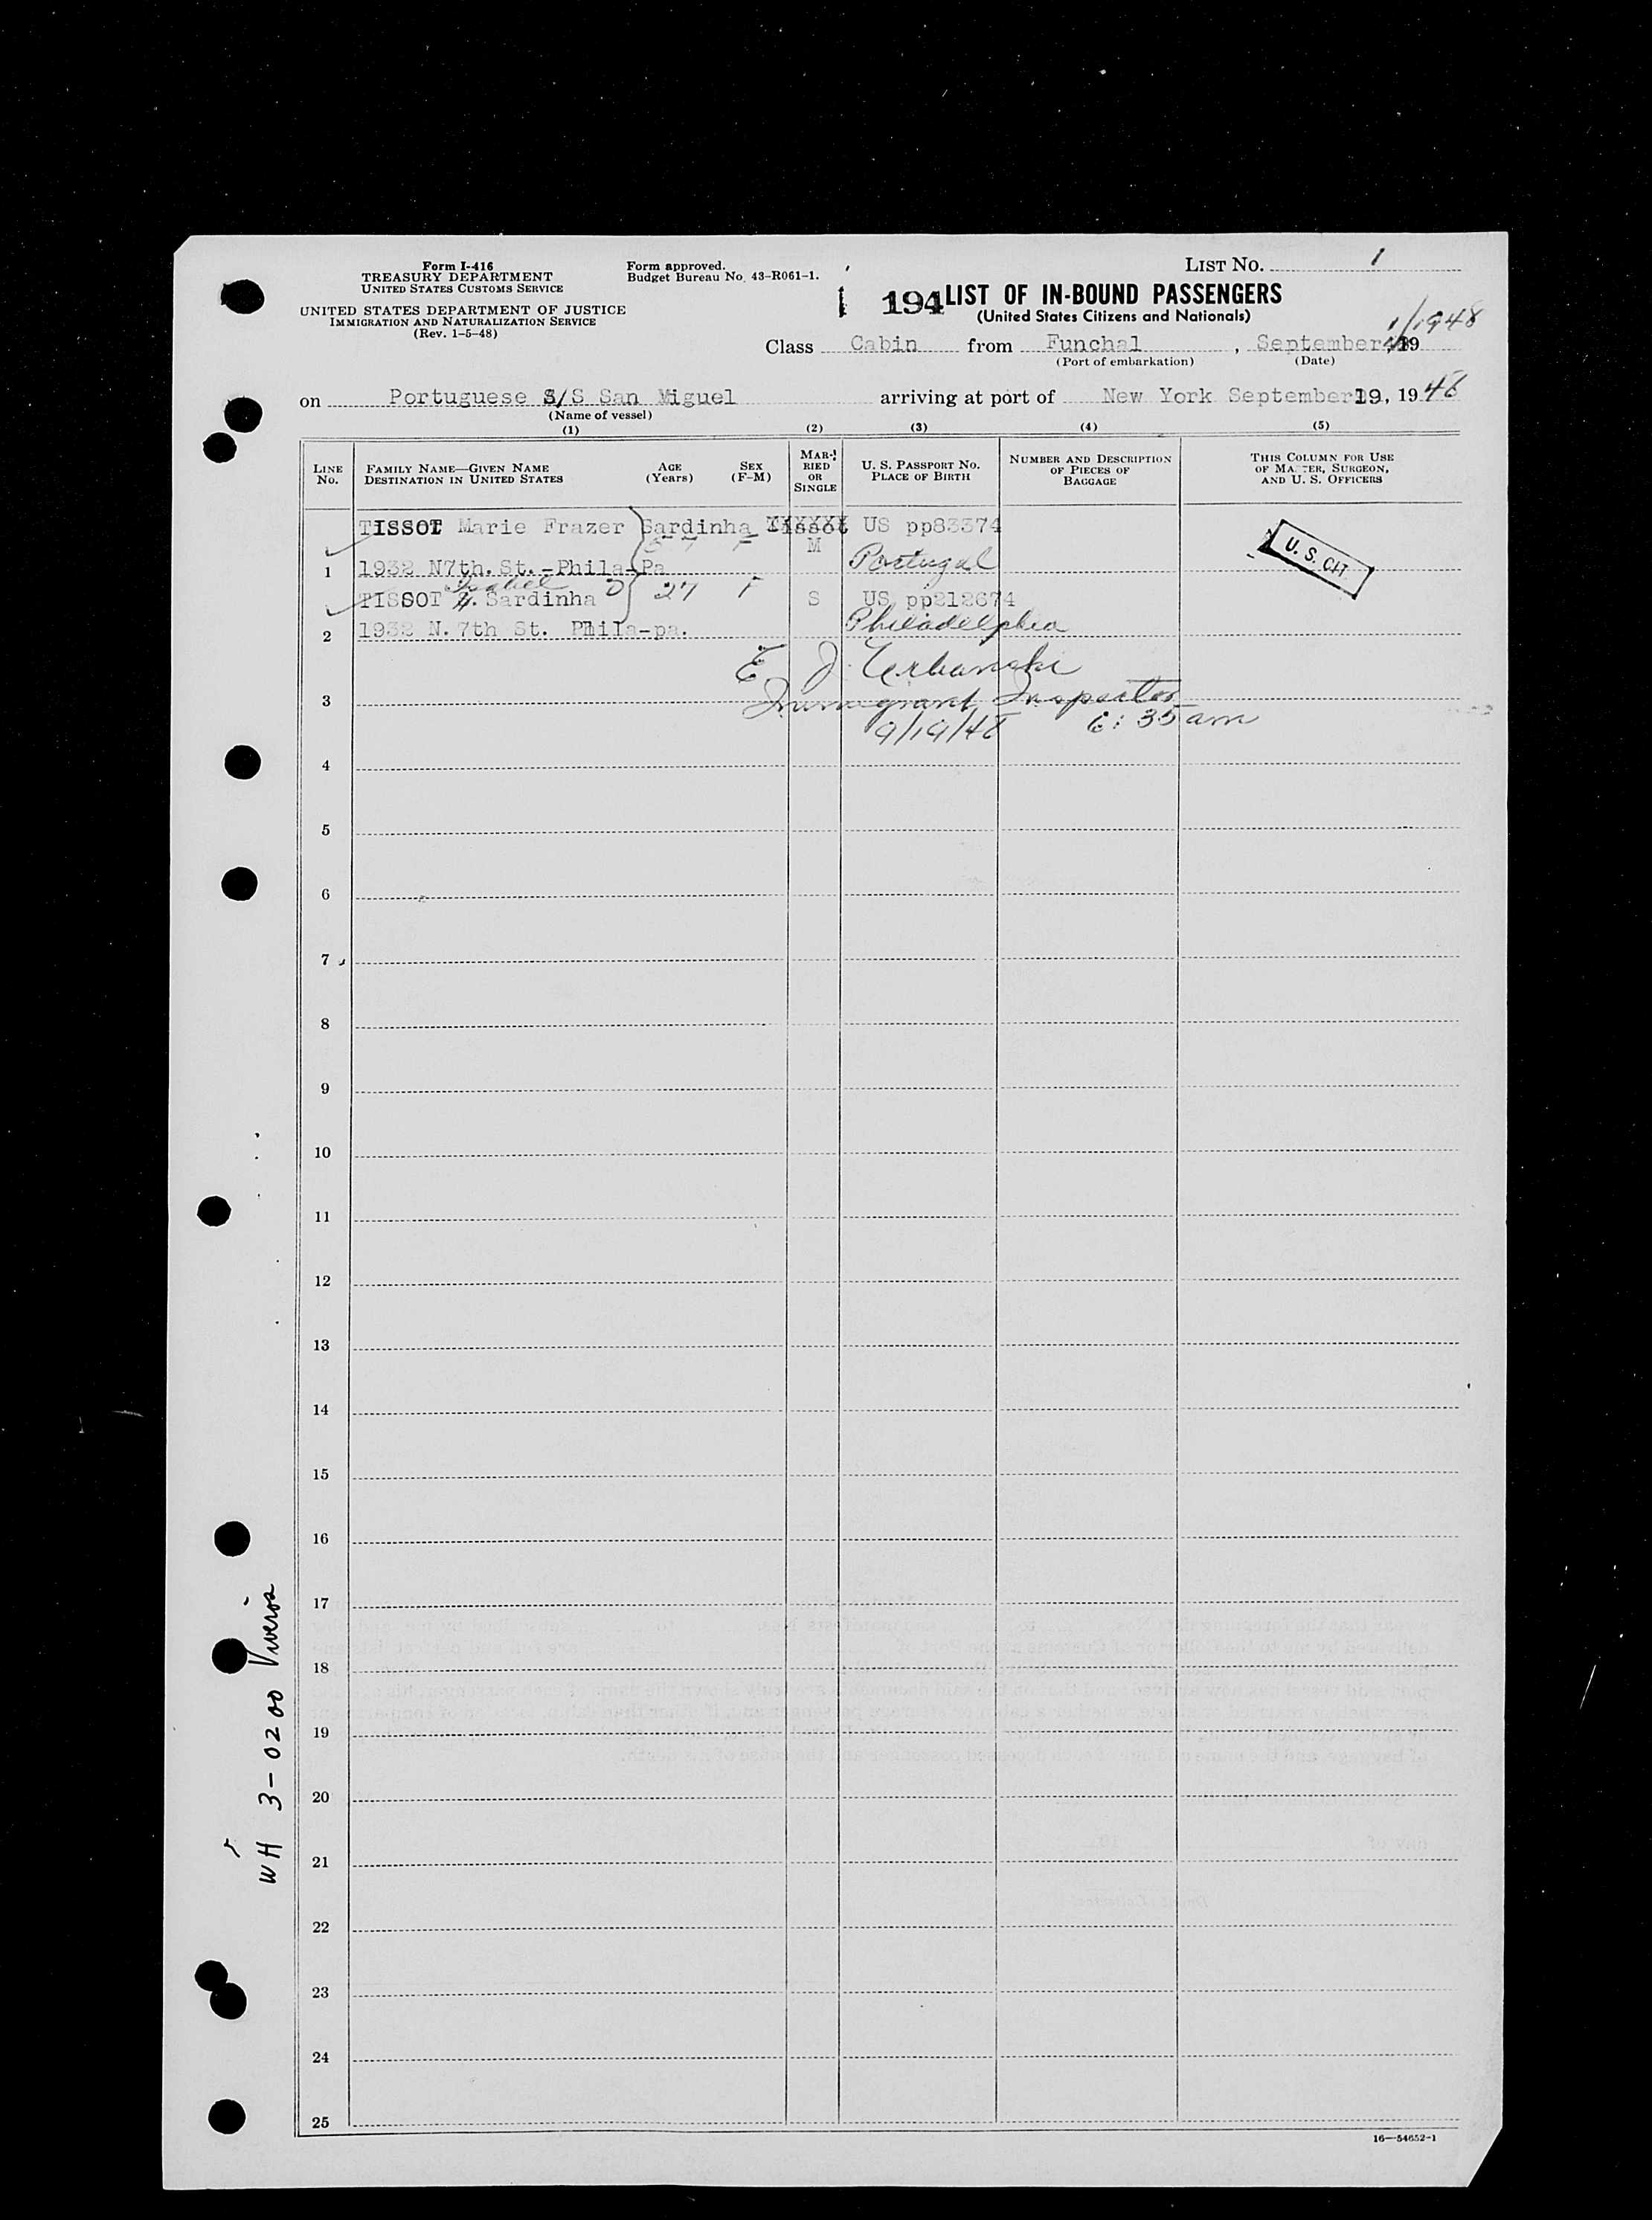 Form I-416
TREASURY DEPARTMENT
UNITED STATES CUSTOMS SERVICE
UNITED STATES DEPARTMENT OF JUSTICE
IMMIGRATION AND NATURALIZATION SERVICE
(Rev. 1-5-48)
Form approved.
Budget Bureau No. 43-R061-1.
LIST NO. 1
194 LIST OF IN-BOUND PASSENGERS
(United States Citizens and Nationals)
Class Cabin from Funchal, September 1948
(Port of embarkation) (Date)
on Portuguese S/S San Miguel arriving at port of New York September 19, 1948
(Name of vessel)
(1) (2) (3) (4) (5)
LINE No. FAMILY NAME—GIVEN NAME DESTINATION IN UNITED STATES AGE (Years) SEX (F-M) MARRIED OR SINGLE U. S. PASSPORT NO. PLACE OF BIRTH NUMBER AND DESCRIPTION OF PIECES OF BAGGAGE THIS COLUMN FOR USE OF MASTER, SURGEON, AND U. S. OFFICERS
TISSOT Marie Frazer Sardinha Tissot US pp83374
57 F M U. S. CIT.
1 1932 N7th. St.-Phila-Pa Portugal
Isabel
TISSOT Sardinha 27 F S US pp212674
2 1932 N. 7th St. Phila-pa. Philadelphia
E J. Urbanski
3 Immigrant Inspector
9/19/48 6:35 am
4
5
6
7
8
9
10
11
12
13
14
15
16
17
18
19
20
21
22
23
24
25
16—54652-1
WH 3-0200 Viveros